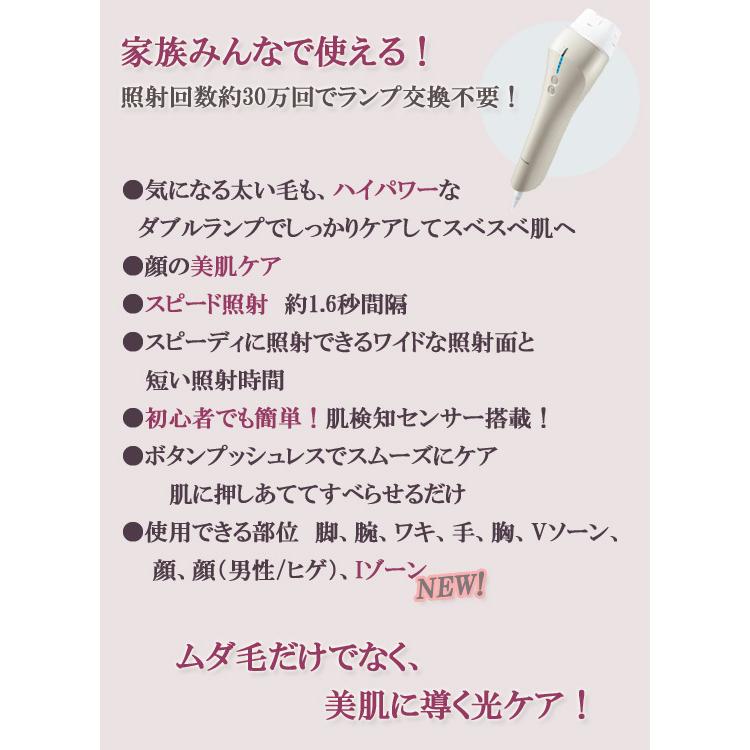 家族みんなで使える！
照射回数約30万回でランプ交換不要！
●気になる太い毛も、ハイパワーな
ダブルランプでしっかりケアしてスベスベ肌へ
●顔の美肌ケア
●スピード照射 約1.6秒間隔
●スピーディに照射できるワイドな照射面と
短い照射時間
●初心者でも簡単！肌検知センサー搭載！
●ボタンプッシュレスでスムーズにケア
肌に押しあててすべらせるだけ
●使用できる部位 脚、腕、ワキ、手、胸、Vゾーン、
顔、顔（男性/ヒゲ）、Iゾーン
NEW!
ムダ毛だけでなく、
美肌に導く光ケア！